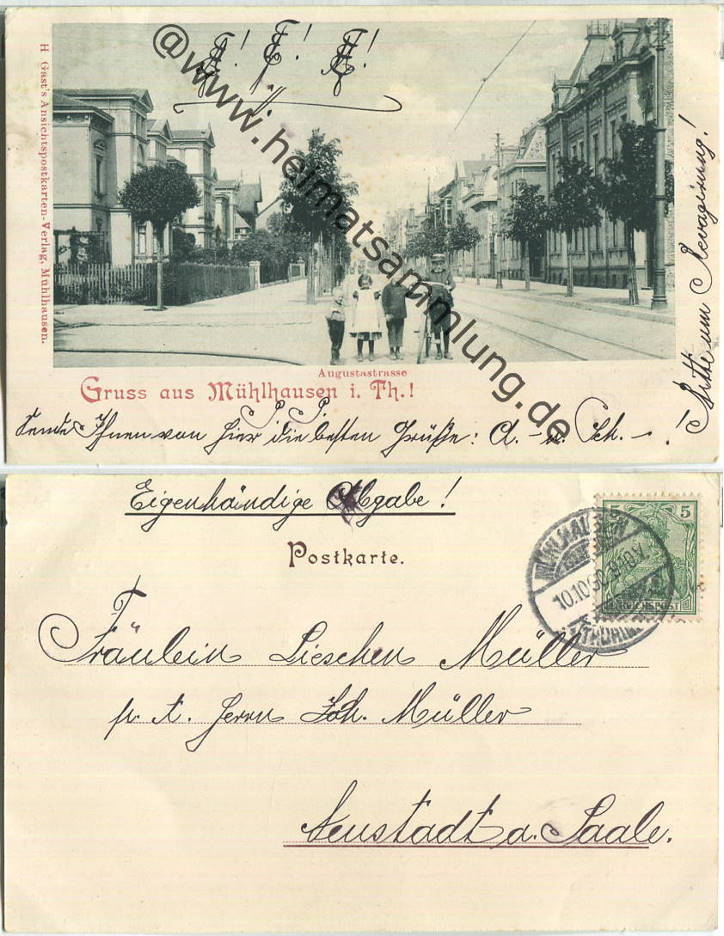 A! F! A!
@www.heimatsammlung.de
H. Gast's Ansichtspostkarten-Verlag, Mühlhausen.
Augustastrasse
Gruss aus Mühlhausen i. Th.!
Sende Ihnen von hier die besten Grüße: A. - u. Sch. - !
Bitte um Revagirung!
Eigenhändige Abgabe!
Postkarte.
5 5
REICHSPOST
MÜHLHAUSEN
10.10.00. 9-10.V.
(THÜRING.)
Fräulein Lieschen Müller
p. A. Herrn Joh. Müller
Neustadt a. Saale.